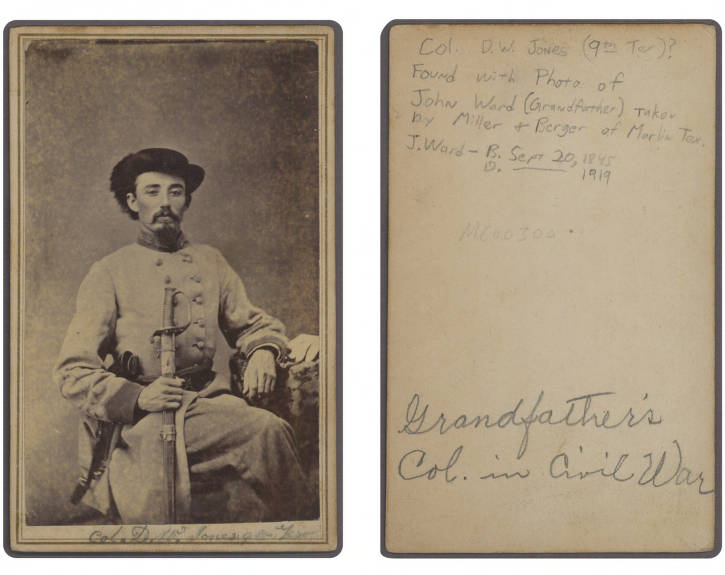 Col. D. W. Jones 9th Tex
Col. D. W. Jones (9th Tex)?
Found with Photo of
John Ward (Grandfather) taken
by Miller + Berger of Marlin Tex.
J. Ward - B. Sept 20, 1845
D. 1919
MC00300
Grandfather's
Col. in Civil War